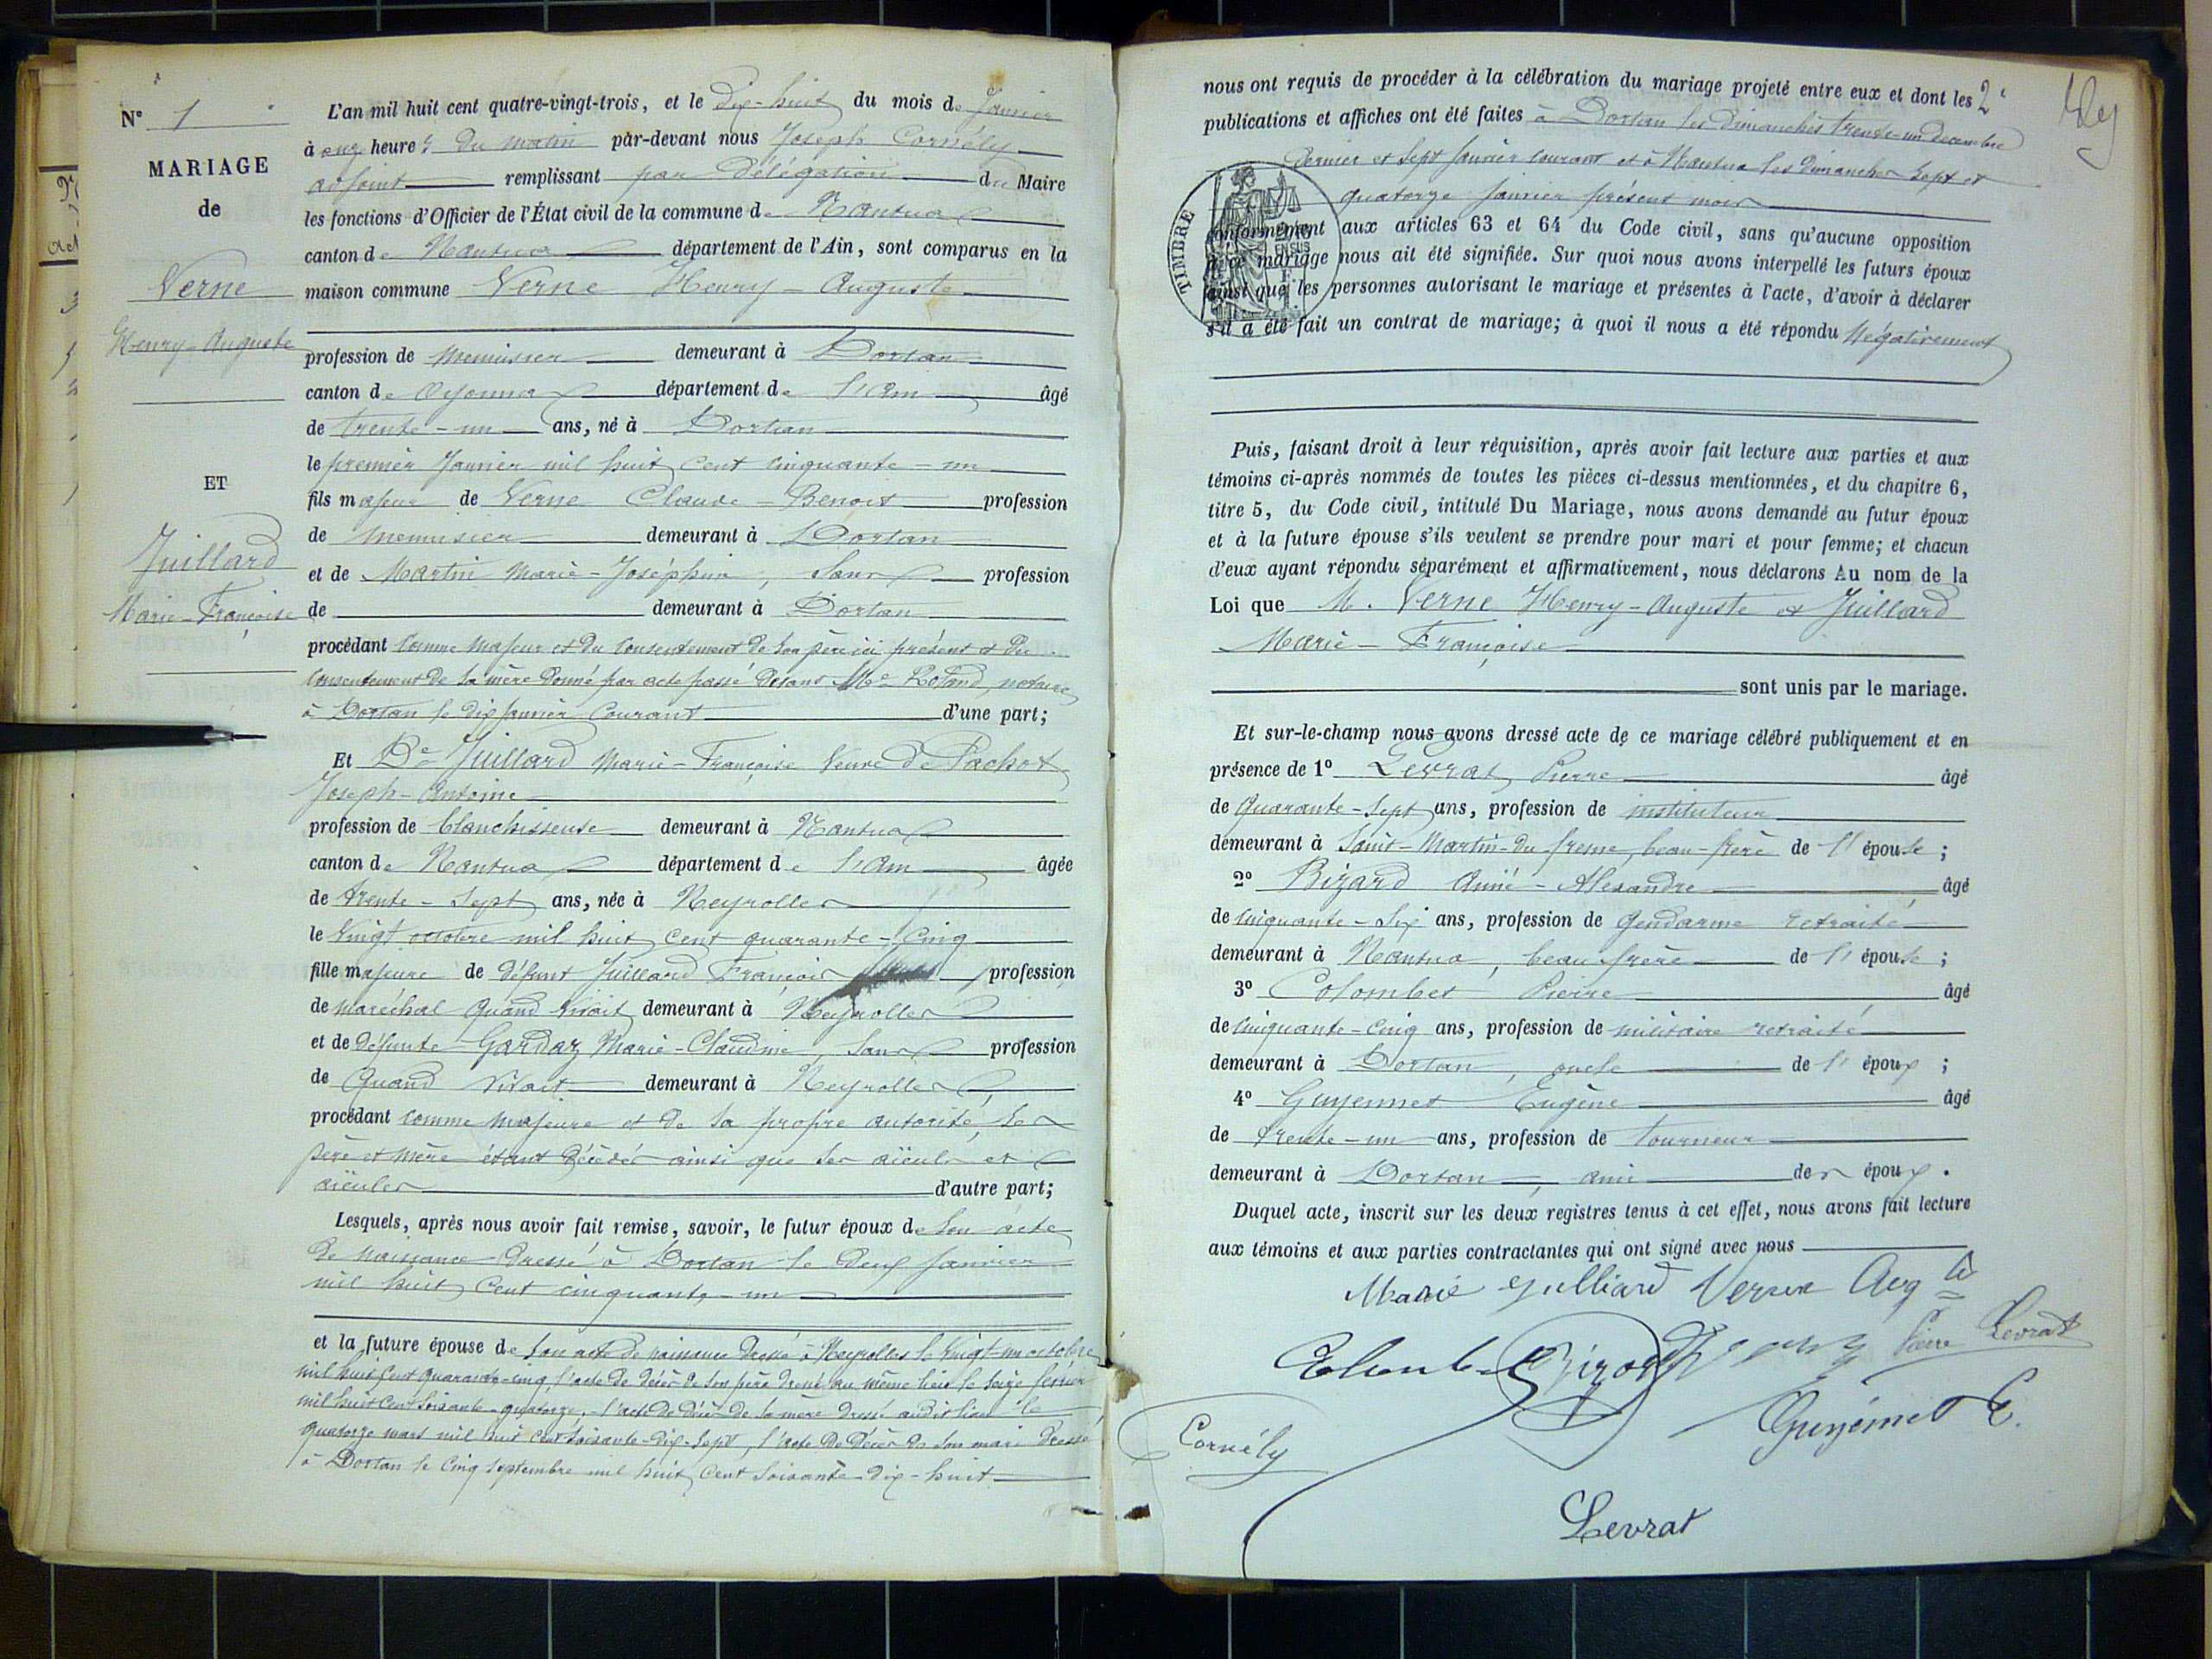 N° 1
MARIAGE
de
Verne
Henry-Auguste
ET
Juillard
Marie-Françoise
L'an mil huit cent quatre-vingt-trois, et le dix-huit du mois de Janvier
à onze heures du matin par-devant nous Joseph Cornély
adjoint remplissant par délégation du Maire
les fonctions d'Officier de l'État civil de la commune de Nantua
canton de Nantua département de l'Ain, sont comparus en la
maison commune Verne Henry-Auguste
profession de menuisier demeurant à Dortan
canton de Oyonnax département de l'Ain âgé
de trente-un ans, né à Dortan
le premier Janvier mil huit cent cinquante-un
fils majeur de Verne Claude-Benoit profession
de menuisier demeurant à Dortan
et de Martin Marie-Joséphine, sans profession
de demeurant à Dortan
procédant comme majeur et du consentement de son père ici présent et du
consentement de sa mère donné par acte passé devant Me Roland, notaire
à Dortan le dix janvier courant d'une part;
Et De Juillard Marie-Françoise Veuve de Pachot
Joseph-Antoine
profession de blanchisseuse demeurant à Nantua
canton de Nantua département de l'Ain âgée
de trente-sept ans, née à Neyrolles
le vingt octobre mil huit cent quarante-cinq
fille majeure de défunt Juillard François profession
de maréchal quand vivait demeurant à Neyrolles
et de défunte Gardaz Marie-Claudine, sans profession
de quand vivait demeurant à Neyrolles,
procédant comme majeure et de sa propre autorité, ses
père et mère étant décédés ainsi que ses aïeuls et
aïeules d'autre part;
Lesquels, après nous avoir fait remise, savoir, le futur époux de son acte
de naissance dressé à Dortan le deux janvier
mil huit cent cinquante-un
et la future épouse de son acte de naissance dressé à Neyrolles le vingt-un octobre
mil huit cent quarante-cinq, l'acte de décès de son père dressé au même lieu le seize février
mil huit cent soixante-quatorze, l'acte de décès de sa mère dressé audit lieu le
quatorze mars mil huit cent soixante-dix-sept, l'acte de décès de son mari dressé
à Dortan le cinq septembre mil huit cent soixante-dix-huit
nous ont requis de procéder à la célébration du mariage projeté entre eux et dont les 2
publications et affiches ont été faites à Dortan les dimanches trente-un décembre
dernier et sept janvier courant et à Nantua les dimanches sept et
quatorze janvier présent mois
TIMBRE
conformément aux articles 63 et 64 du Code civil, sans qu'aucune opposition
à ce mariage nous ait été signifiée. Sur quoi nous avons interpellé les futurs époux
ainsi que les personnes autorisant le mariage et présentes à l'acte, d'avoir à déclarer
s'il a été fait un contrat de mariage; à quoi il nous a été répondu négativement
Puis, faisant droit à leur réquisition, après avoir fait lecture aux parties et aux
témoins ci-après nommés de toutes les pièces ci-dessus mentionnées, et du chapitre 6,
titre 5, du Code civil, intitulé Du Mariage, nous avons demandé au futur époux
et à la future épouse s'ils veulent se prendre pour mari et pour femme; et chacun
d'eux ayant répondu séparément et affirmativement, nous déclarons Au nom de la
Loi que M. Verne Henry-Auguste et Juillard
Marie-Françoise
sont unis par le mariage.
Et sur-le-champ nous avons dressé acte de ce mariage célébré publiquement et en
présence de 1° Levrat Pierre âgé
de quarante-sept ans, profession de instituteur
demeurant à Saint-Martin-du-fresne, beau-frère de l'épouse;
2° Bizard Aimé-Alexandre âgé
de cinquante-six ans, profession de gendarme retraité
demeurant à Nantua, beau-frère de l'épouse;
3° Colombet Pierre âgé
de cinquante-cinq ans, profession de militaire retraité
demeurant à Dortan, oncle de l'époux;
4° Guyennet Eugène âgé
de trente-un ans, profession de tourneur
demeurant à Dortan, ami des époux.
Duquel acte, inscrit sur les deux registres tenus à cet effet, nous avons fait lecture
aux témoins et aux parties contractantes qui ont signé avec nous
Marie Julliard Verne Aug te
Pierre Levrat
Guyénnet E.
Cornély
Levrat